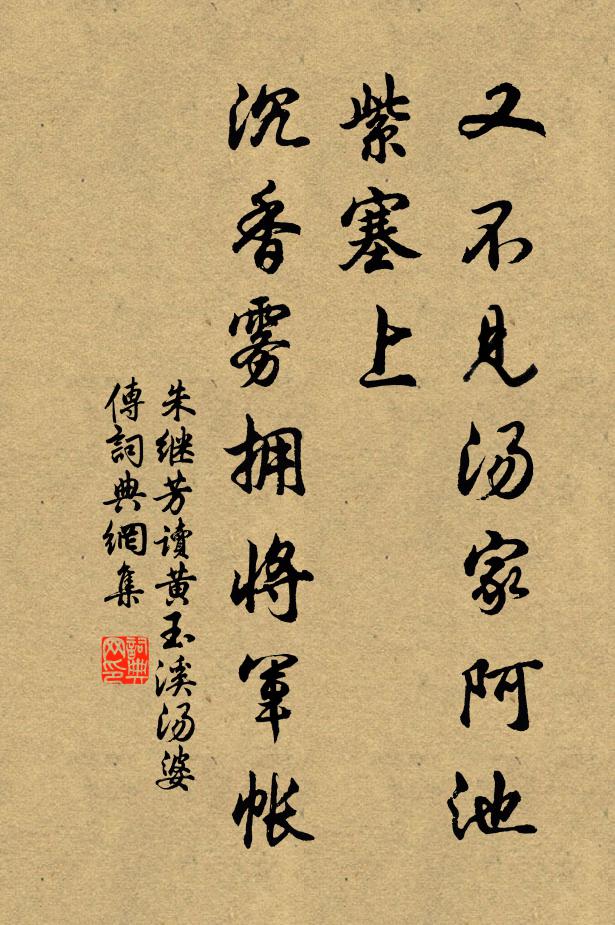 又不见汤家阿池
紫塞上
沉香雾拥将军帐
朱继芳读黄玉溪汤婆
傳詞典網集
詞典
网印